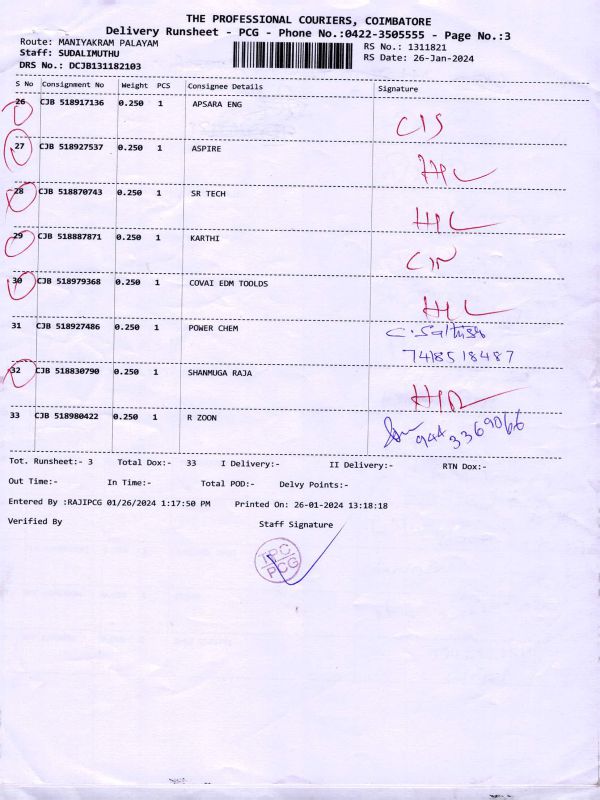 THE PROFESSIONAL COURIERS, COIMBATORE
Delivery Runsheet - PCG - Phone No.:0422-3505555 - Page No.:3
Route: MANIYAKRAM PALAYAM RS No.: 1311821
Staff: SUDALIMUTHU RS Date: 26-Jan-2024
DRS No.: DCJB131182103
S No Consignment No Weight PCS Consignee Details Signature
26 CJB 518917136 0.250 1 APSARA ENG
CIS
27 CJB 518927537 0.250 1 ASPIRE
28 CJB 518870743 0.250 1 SR TECH
29 CJB 518887871 0.250 1 KARTHI
30 CJB 518979368 0.250 1 COVAI EDM TOOLDS
31 CJB 518927486 0.250 1 POWER CHEM
7418518487
32 CJB 518830790 0.250 1 SHANMUGA RAJA
33 CJB 518980422 0.250 1 R ZOON
944 3369066
Tot. Runsheet:- 3 Total Dox:- 33 I Delivery:- II Delivery:- RTN Dox:-
Out Time:- In Time:- Total POD:- Delvy Points:-
Entered By :RAJIPCG 01/26/2024 1:17:50 PM Printed On: 26-01-2024 13:18:18
Verified By Staff Signature